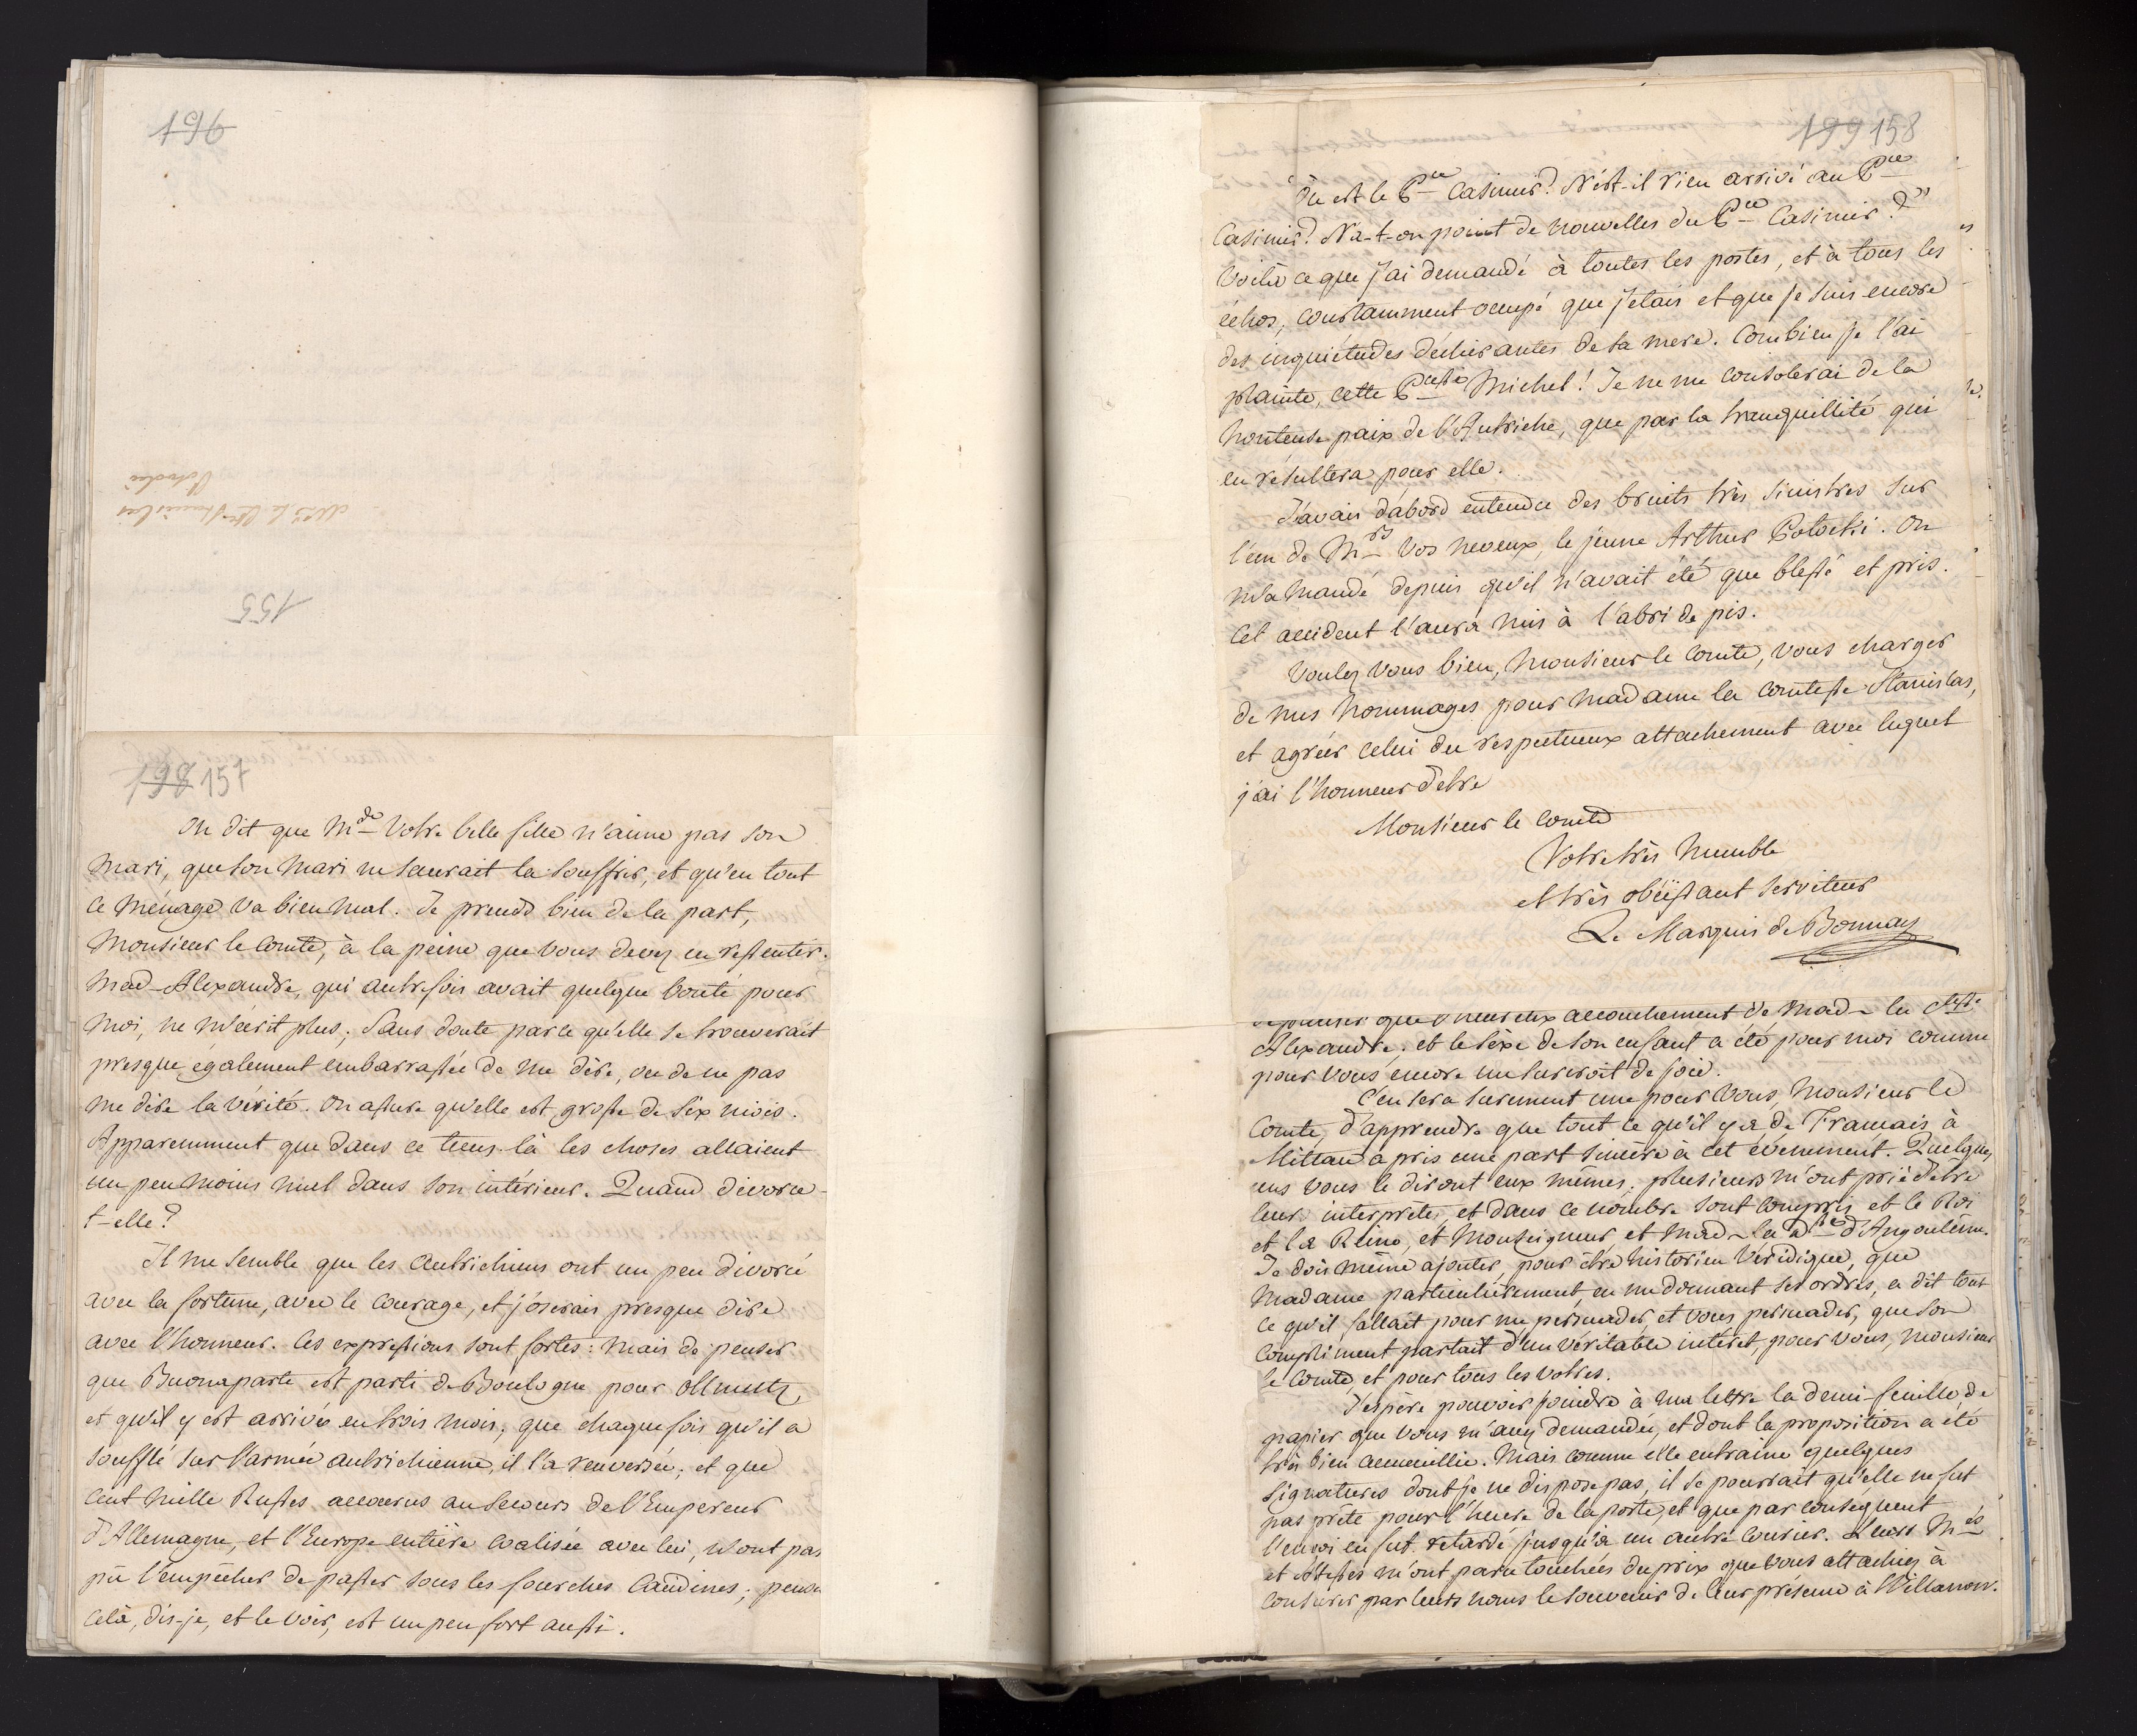 196
155
198 157
On dit que M.de Votre belle fille n'aime pas son
mari, que son mari ne saurait la souffrir, et qu'en tout
ce ménage va bien mal. Je prends bien de la part,
Monsieur le Comte, à la peine que vous devez en ressentir.
Mad. Alexandre, qui autrefois avait quelque bonté pour
moi, ne m'écrit plus; Sans doute parce qu'elle se trouverait
presque également embarrassée de me dire, ou de ne pas
me dire la vérité. On assure qu'elle est grosse de six mois.
Apparemment que dans ce tems-là les choses allaient
un peu moins mal dans son intérieur. Quand divorce-
t-elle?
Il me semble que les Autrichiens ont un peu divorcé
avec la fortune, avec le courage, et j'oserais presque dire
avec l'honneur. Ces expressions sont fortes: mais de penser
que Buonaparte est parti de Boulogne pour Ollmutz,
et qu'il y est arrivé en trois mois; que chaque fois qu'il a
soufflé sur l'armée autrichienne, il l'a renversée; et que
cent mille Russes accourus au secours de l'Empereur
d'Allemagne, et l'Europe entière coalisée avec lui, n'ont pas
pû l'empêcher de passer sous les fourches Caudines; penser
celà, dis-je, et le voir, est un peu fort aussi.
199 158
Où est le P.ce Casimir? N'est-il rien arrivé au P.ce
Casimir? N'a-t-on point de nouvelles du P.ce Casimir?"
Voilà ce que j'ai demandé à toutes les postes, et à tous les
échos, constamment occupé que j'étais et que je suis encore
des inquiétudes déchirantes de sa mere. Combien je l'ai
plainte, cette P.cesse Michel! Je ne me consolerai de la
honteuse paix de l'Autriche, que par la tranquillité qui
en résultera pour elle.
J'avais d'abord entendu des bruits très sinistres sur
l'un de M.rs vos neveux, le jeune Arthur Potocki. On
m'a mandé depuis qu'il n'avait été que blessé et pris.
Cet accident l'aura mis à l'abri de pis.
Voulez vous bien, Monsieur le Comte, vous charger
de mes hommages pour Madame la Comtesse Stanislas,
et agréer celui du respectueux attachement avec lequel
j'ai l'honneur d'etre
Monsieur le Comte
Votre très humble
et très obéissant serviteur
Le Marquis de Bonnay
que l'heureux accouchement de Mad. la Ctesse
Alexandre; et le sèxe de son enfant a été pour moi comme
pour vous encore un surcroit de joie.
C'en sera surement une pour Vous, Monsieur le
Comte, d'apprendre que tout ce qu'il y a de Français à
Mittau a pris une part sincère à cet évenement. Quelques
uns vous le diront eux mêmes; plusieurs m'ont prié d'etre
leur interprête; et dans ce nombre sont compris et le Roi
et la Reine, et Monseigneur et Mad. la D.sse d'Angoulême.
Je dois même ajouter, pour être historien véridique, que
Madame particulièrement, en me donnant ses ordres, a dit tout
ce qu'il fallait pour me persuader, et vous persuader, que son
compliment partait d'un véritable intérêt, pour vous, Monsieur
le Comte, et pour tous les vôtres.
J'espère pouvoir joindre à ma lettre la demi-feuille de
papier que vous m'avez demandée, et dont la proposition a été
très bien accueillie. Mais comme elle entraine quelques
signatures dont je ne dispose pas, il se pourrait qu'elle ne fut
pas prête pour l'heure de la poste, et que par conséquent
l'envoi en fut retardé jusqu'à un autre Courier. Leurs M.és
et Altesses m'ont paru touchées du prix que vous attachiez à
conserver par leurs noms le souvenir de leur présence à Willanow.